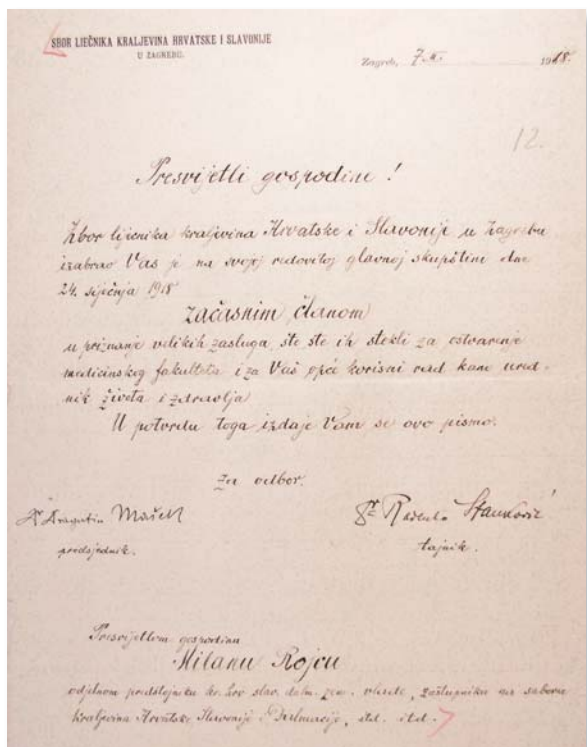 SBOR LIEČNIKA KRALJEVINA HRVATSKE I SLAVONIJE
U ZAGREBU.
Zagreb, 7. 1918.
12.
Presvijetli gospodine!
Zbor liječnika kraljevina Hrvatske i Slavonije u Zagrebu
izabrao Vas je na svojoj redovitoj glavnoj skupštini dne
24. siječnja 1918
začasnim članom
u priznanje velikih zasluga, što ste ih stekli za ostvarenje
medicinskog fakulteta i za Vaš opće korisni rad kano ured-
nik života i zdravlja
U potvrdu toga izdaje Vam se ovo pismo.
Za odbor:
Dr Dragutin Mašek
predsjednik.
Dr Radenko Stanković
tajnik.
Presvijetlom gospodinu
Milanu Rojcu
odjelnom predstojniku kr. hrv. slav. dalm. zem. vlade, zastupniku na saboru
kraljevina Hrvatske Slavonije i Dalmacije, itd. itd.